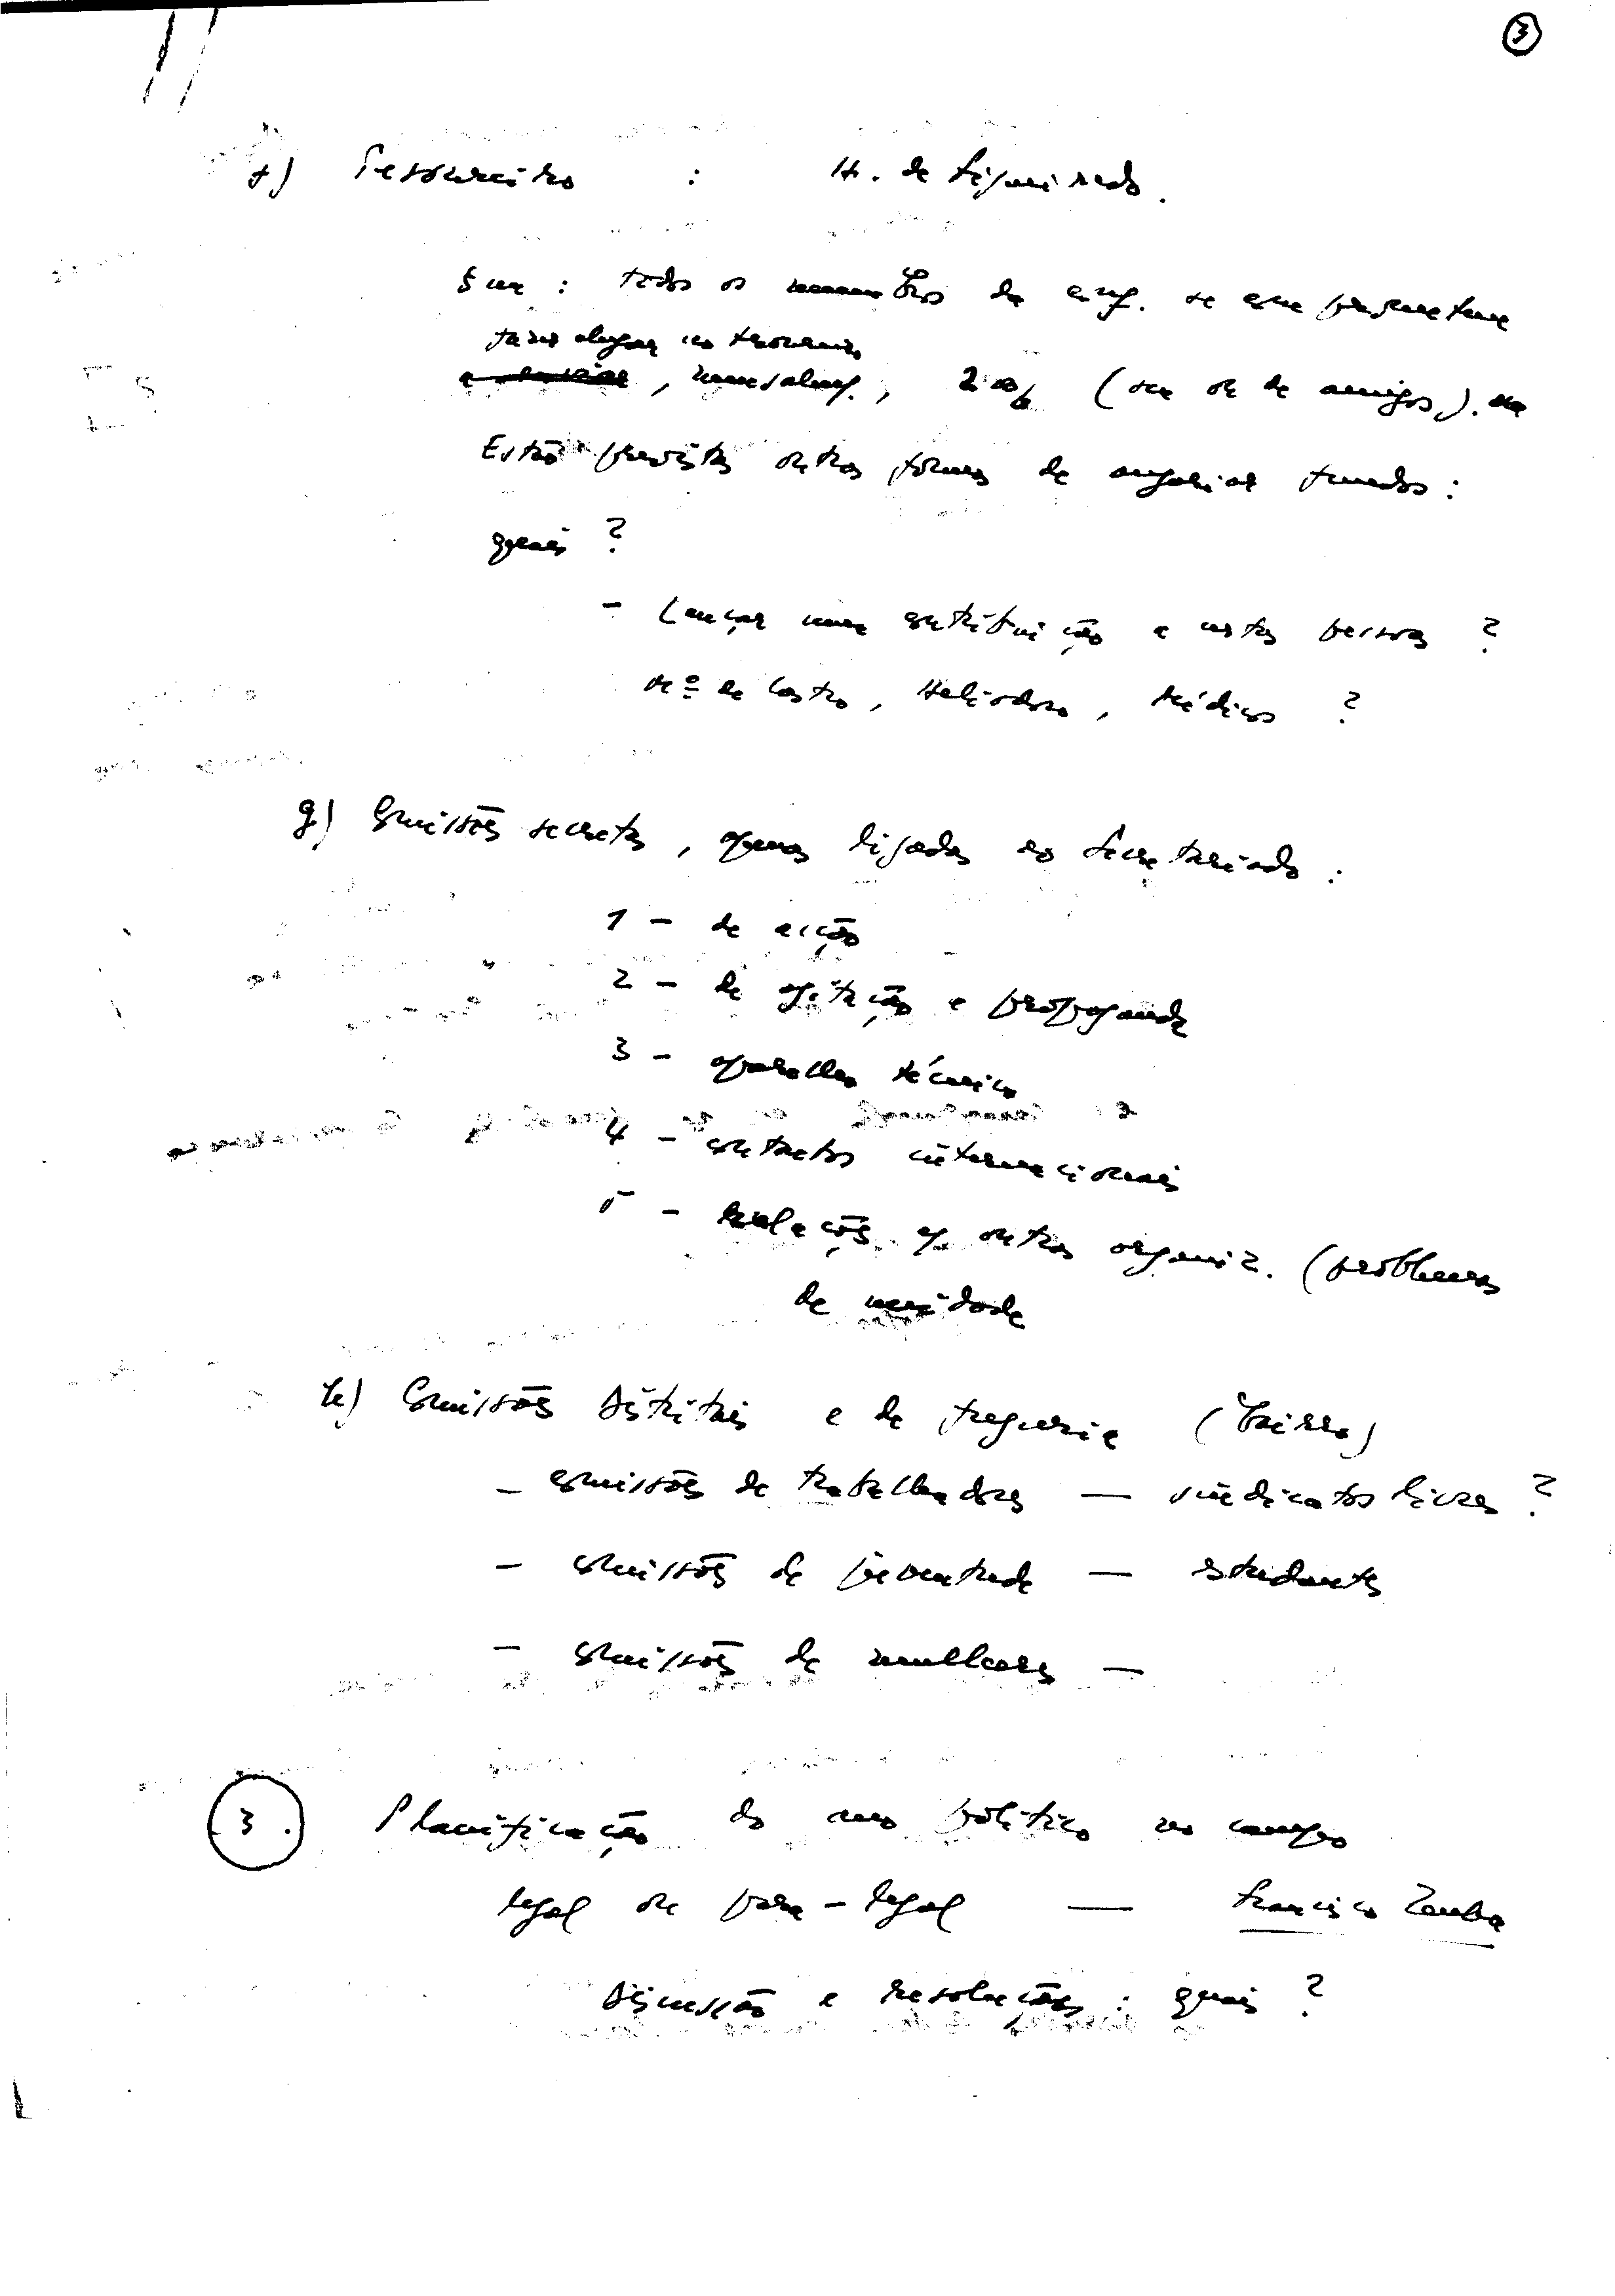 3
f) Tesoureiro : H. de Figueiredo.
§ un : todos os membros da se comprometem
fazer chegar ao tesoureiro
, mensalmte., (seu ou de amigos).
Estão previstas outras formas de angariar fundos :
quais ?
- Lançar uma contribuição a certas pessoas ?
de Castro, Heliodoro, Médicos ?
g) Comissões secretas, apenas ligadas ao Secretariado :
1 - de acção
2 - de agitação e propaganda
3 - aparelho técnico
4 - contactos internacionais
5 - relações c/ outras organiz. (problemas
de unidade
h) Comissões distritais e de freguesia (bairro)
- comissões de trabalhadores — sindicatos livres ?
- comissões de juventude — estudantes
- comissões de mulheres —
3. Planificação do ano político no campo
legal ou para-legal — Francisco Zenha
Discussão e resoluções : quais ?